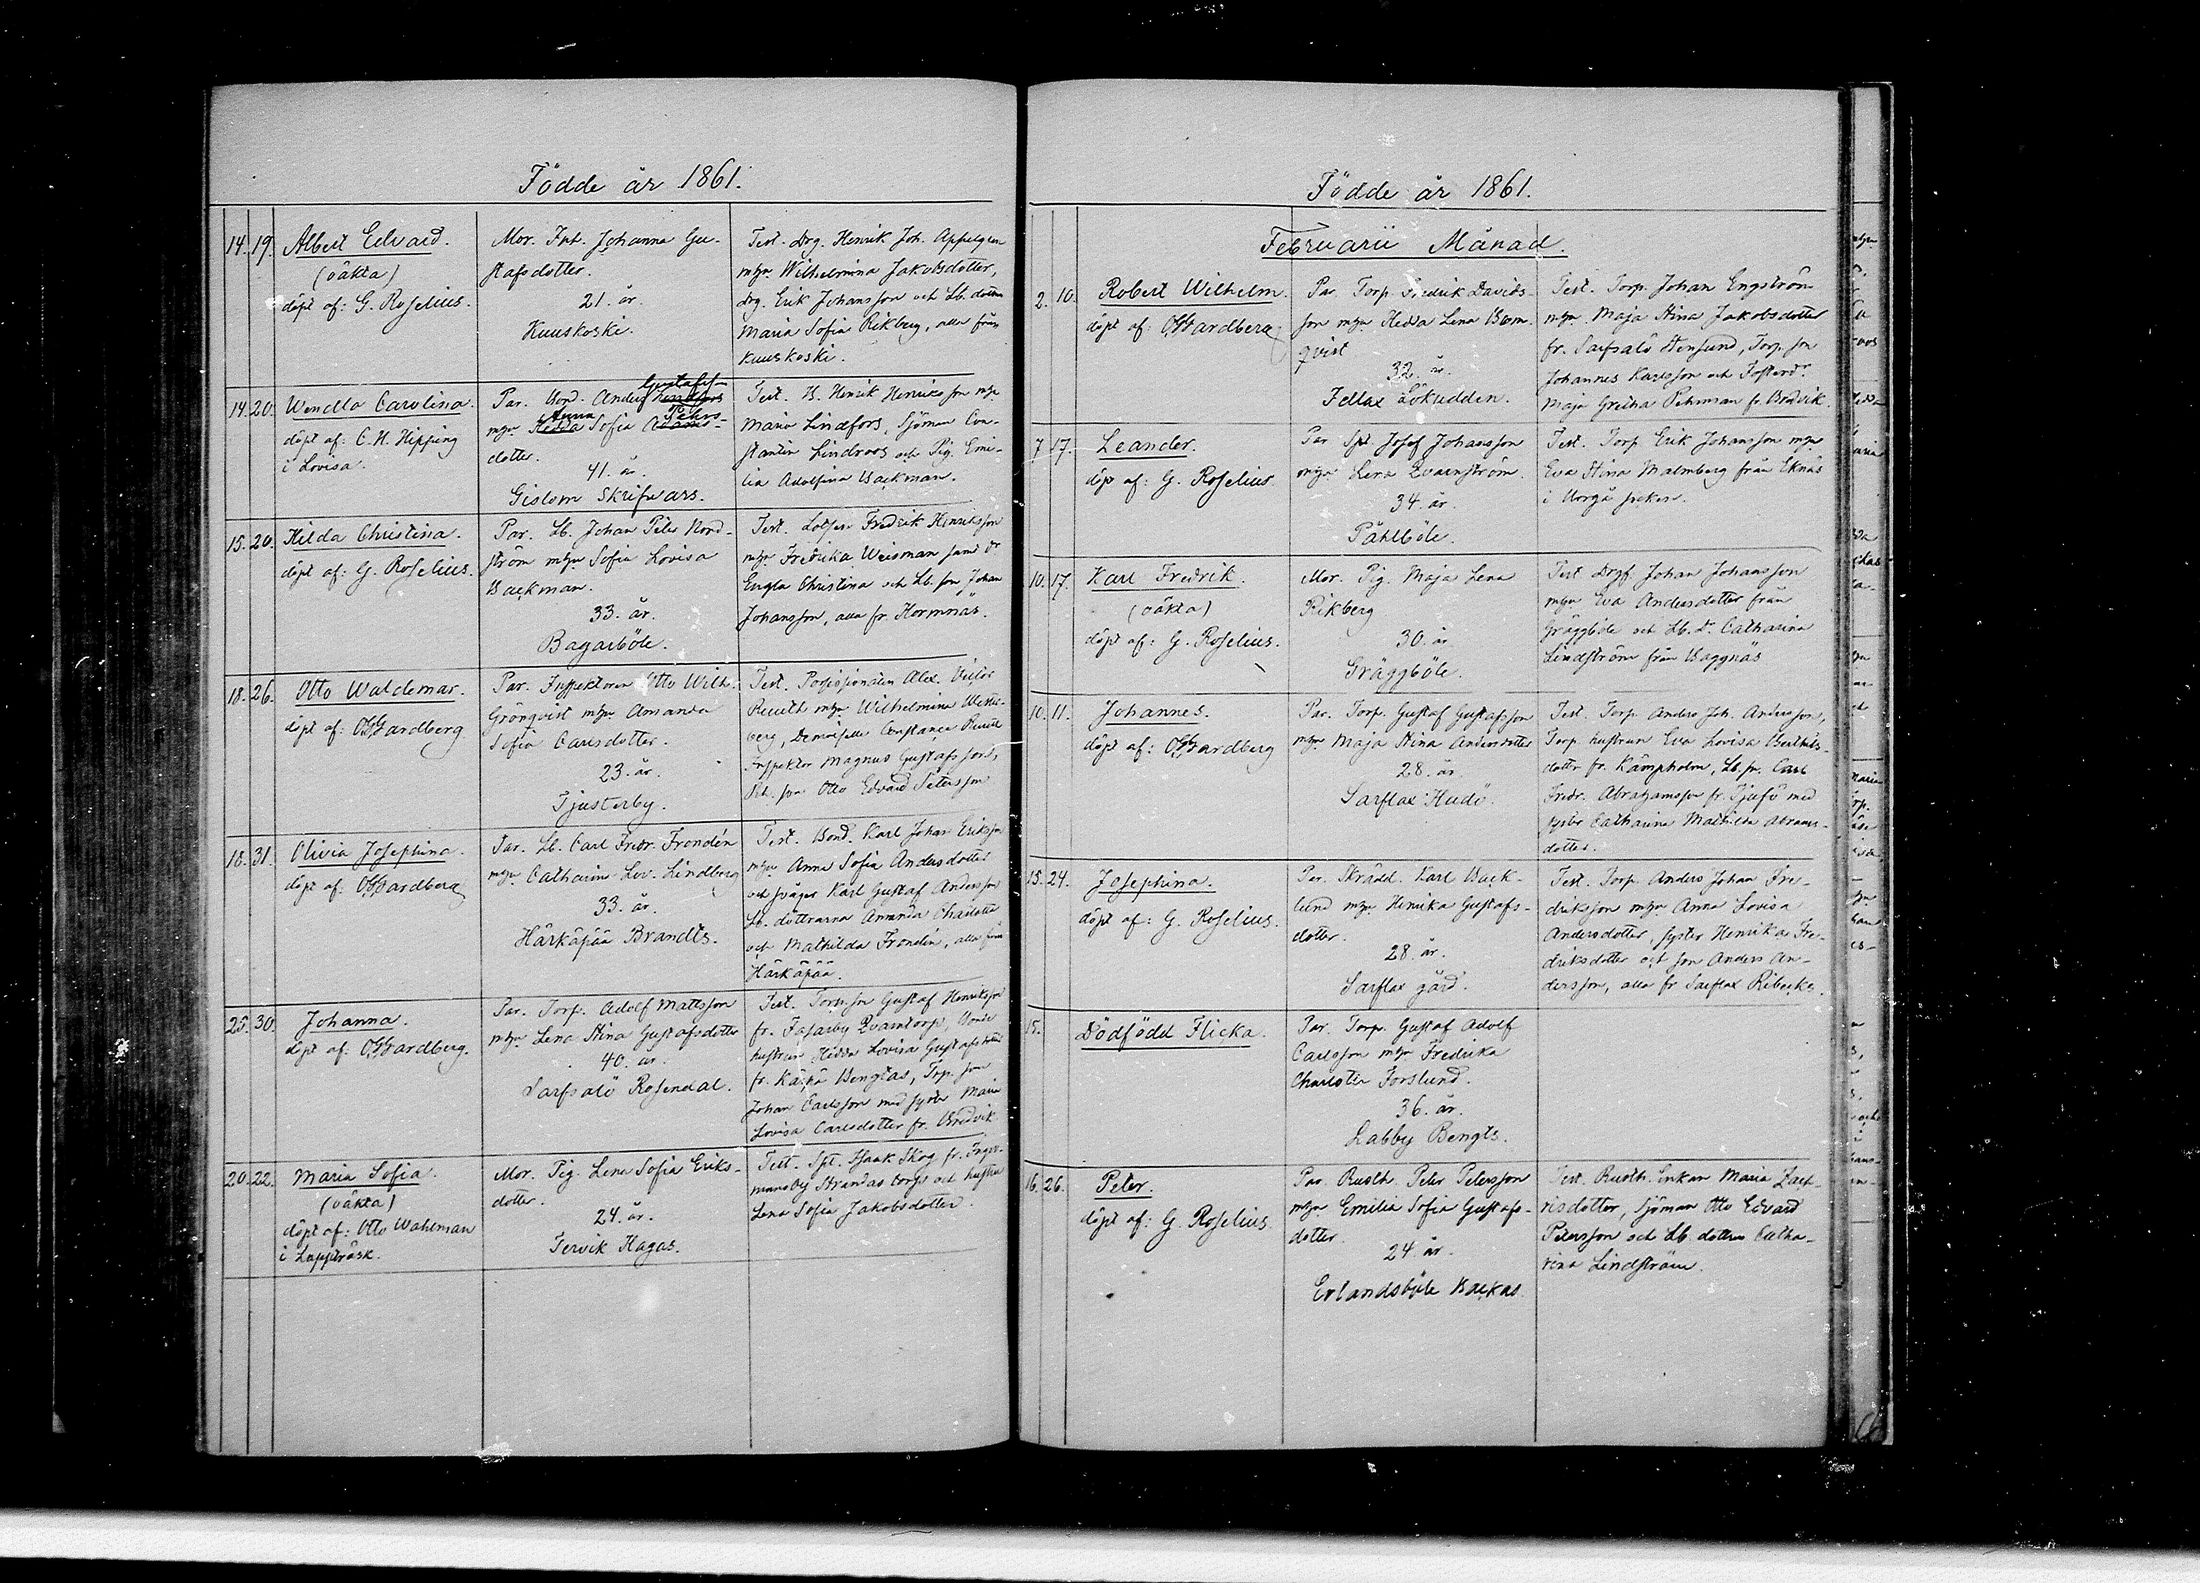 Födde år 1861.
14. 19. Albert Edvard.
(oäkta)
döpt af: G. Roselius.
Mor. Inh. Johanna Gu-
stafsdotter.
21. år.
Kuuskoski.
Test. Drg. Henrik Joh. Appelgren
mhu Wilhelmina Jakobsdotter,
drg. Erik Johansson och Lb. dotter
Maria Sofia Rikberg, alla från
Kuuskoski.
14. 20. Wendla Carolina.
döpt af: C. H. Hipping
i Lovisa.
Gustafss-
Par. Bond. Anders Lindfors
Anna Pehrs
mhu Hedda Sofia Adams-
dotter.
41. år.
Gislom Skrifvars.
Test. B. Henrik Henriksson mhu
Maria Lindfors, Sjöman Con-
stantin Lindroos och Pig. Emi-
lia Adolfina Backman.
15. 20. Hilda Christina.
döpt af: G. Roselius.
Par. Lb. Johan Peter Nord-
ström mhu Sofia Lovisa
Backman.
33. år.
Bagarböle.
Test. Lotsen Fredrik Henriksson
mhu Fredrika Weisman samt dr
Engla Christina och Lb. son Johan
Johansson, alla fr. Hormnäs.
18. 26. Otto Waldemar.
döpt af: OWardberg
Par. Inspektoren Otto Wilh.
Grönqvist mhu Amanda
Sofia Carlsdotter.
23. år.
Tjusterby.
Test. Possessionaten Alex. Victor
Reuth mhu Wilhelmina
berg, Demoiselle Constance Reuth
Inspektor Magnus Gustafsfors,
son Otto Edvard Petersson
18. 31. Olivia Josephina.
döpt af: OWardberg
Par. Lb. Carl Fredr. Frondén
mhu Catharina Lov. Lindberg
33. år.
Härkäpää Brandts.
Test. Bond. Karl Johan Eriksson
mhu Anna Sofia Andersdotter
och svåger Karl Gustaf Andersson
Lb. döttrarna Amanda Charlotta
och Mathilda Frondén, alla från
Härkäpää.
25. 30. Johanna.
döpt af: OWardberg.
Par. Torp. Adolf Mattsson
mhu Lena Stina Gustafsdotter
40. år.
Sarfsalö Rosendal.
Test. Torp. son Gustaf Henriksson
fr. Fasarby Qvarntorp, Bonde
hustrun Hedda Lovisa Gustafsdotter
fr. Käpä Bengtas, Torp. son
Johan Carlsson med syster Maria
Lovisa Carlsdotter fr. Bredvik.
20. 22. Maria Sofia.
(oäkta)
döpt af: Otto Wahlman
i Lappträsk.
Mor. Pig. Lena Sofia Eriks-
dotter.
24. år.
Tervik Hagas.
Test. Spt. Isaak Skog fr. Inger-
mansby Strandas torp och hustru
Lena Sofia Jakobsdotter.
Födde år 1861.
Februarii Månad.
2. 10. Robert Wilhelm.
döpt af: OWardberg
Par. Torp. Fredrik Davids-
son mhu Hedda Lena Blom-
qvist
32. år.
Isllax Lökudden.
Test. Torp. Johan Engström
mhu Maja Stina Jakobsdotter
fr. Sarfsalö Stensund, Torp. son
Johannes Karlsson och Fosterdr
Maja Gretha Pehrman fr. Bredvik.
7. 17. Leander.
döpt af: G. Roselius.
Par. Spt. Josef Johansson
mhu Lena Qvarnström.
34. år.
Påhlböle.
Test. Torp. Erik Johansson mhu
Eva Stina Malmberg från Eknäs
i Borgå socken.
10. 17. Karl Fredrik.
(oäkta)
döpt af: G. Roselius.
Mor. Pig. Maja Lena
Rikberg
30. år
Gräggböle.
Test. Drgf. Johan Johansson
mhu Eva Andersdotter från
Gräggböle och Lb. d. Catharina
Lindström från Baggnäs
10. 11. Johannes.
döpt af: OWardberg
Par. Torp. Gustaf Gustafsson
mhu Maja Stina Andersdotter
28. år.
Sarflax Hudö.
Test. Torp. Anders Joh. Andersson,
Torp. hustrun Eva Lovisa Berthils-
dotter fr. Kämpholm, Lb. sn. Carl
Fredr. Abrahamsson fr. Tjufö med
syster Catharina Mathilda Abrams-
dotter.
15. 24. Josephina.
döpt af: G. Roselius.
Par. Skrädd. Karl Back-
lund mhu Henrika Gustafs-
dotter.
28. år.
Sarflax gård.
Test. Torp. Anders Johan Fre-
driksson mhu Anna Lovisa
Andersdotter, syster Henrika Fre-
driksdotter och son Anders An-
dersson, alla fr. Sarflax Ribacka.
15. Dödfödd Flicka.
Par. Torp. Gustaf Adolf
Carlsson mhu Fredrika
Charlotta Forslund.
36. år.
Labby Bengts.
16. 26. Peter.
döpt af: G. Roselius.
Par. Rusth. Peter Petersson
mhu Emilia Sofia Gustafs-
dotter
24. år.
Erlandsböle Backas
Test. Rusth. Enkan Maria Zach-
risdotter, Sjöman Otto Edvard
Petersson och Lb. dottren Catha-
rina Lindström.